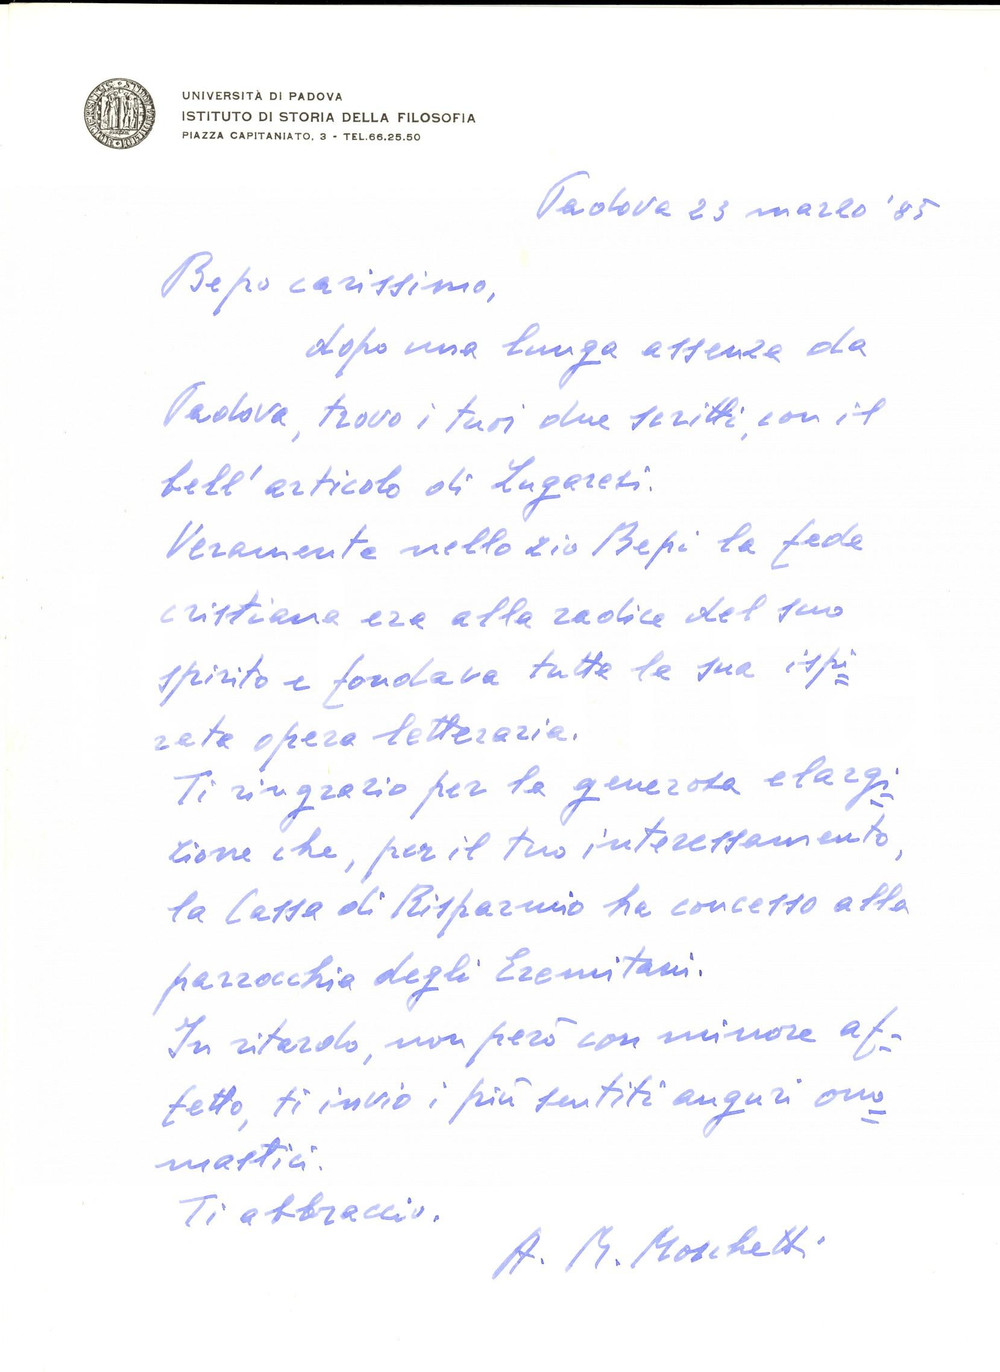 UNIVERSITÀ DI PADOVA
ISTITUTO DI STORIA DELLA FILOSOFIA
PIAZZA CAPITANIATO, 3 - TEL.66.25.50
Padova 23 marzo '85
Bepo carissimo,
dopo una lunga assenza da
Padova, trovo i tuoi due scritti, con il
bell'articolo di Lugaresi.
Veramente nello zio Bepi la fede
cristiana era alla radice del suo
spirito e fondava tutta la sua ispi=
rata opera letteraria.
Ti ringrazio per la generosa elargi=
zione che, per il tuo interessamento,
la Cassa di Risparmio ha concesso alla
parrocchia degli Eremitani.
In ritardo, non però con minore af=
fetto, ti invio i più sentiti auguri ono=
mastici.
Ti abbraccio.
A. M. Moschetti